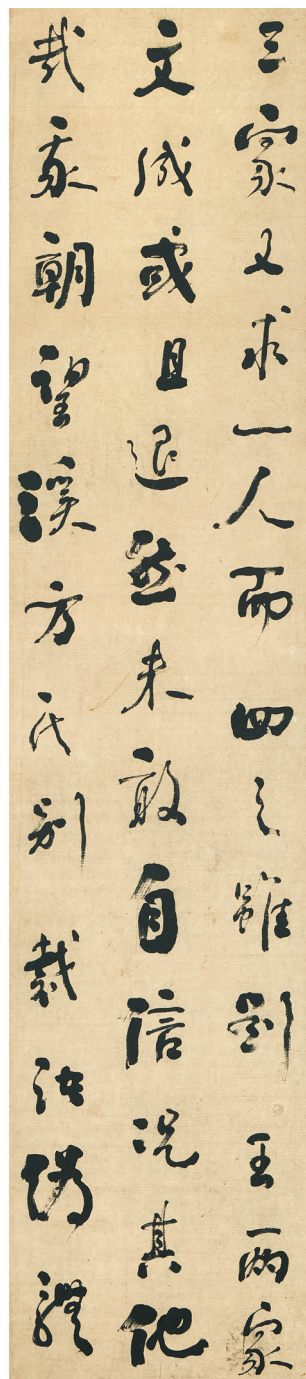 三家又求一人而四之雖劉王兩家
文成或且退然未敢自信况其他
哉我朝望溪方氏別裁偽體